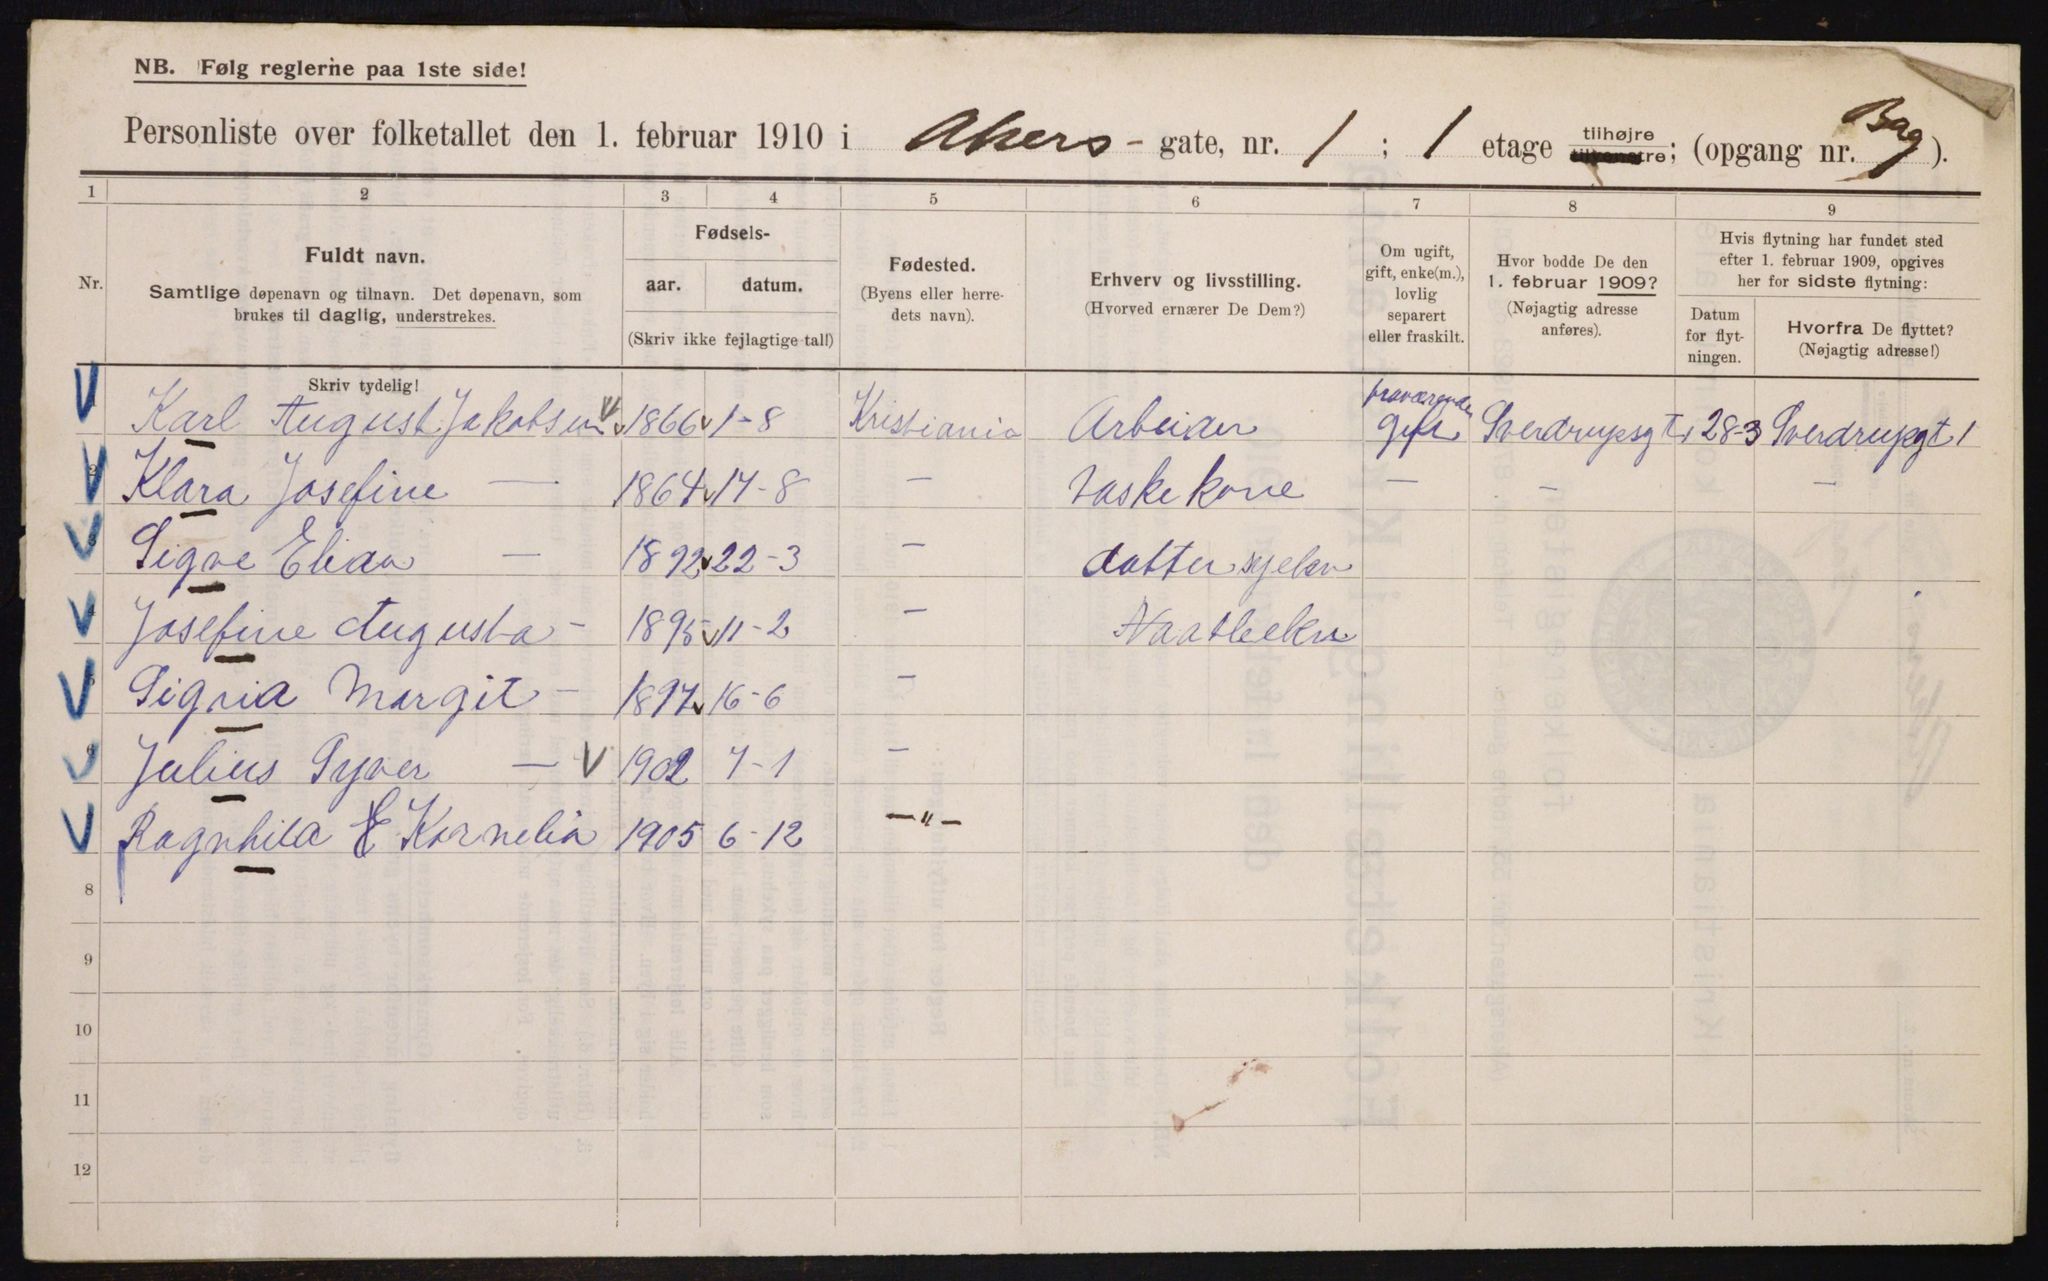 NB. Følg reglerne paa 1ste side!
Personliste over folketallet den 1. februar 1910 i Akers- gate, nr. 1 ; 1 etage tilhøjre tilvenstre; (opgang nr. Bag ).
1 2 3 4 5 6 7 8 9
Nr.
Fuldt navn.
Samtlige døpenavn og tilnavn. Det døpenavn, som
brukes til daglig, understrekes.
Fødsels-
aar. datum.
(Skriv ikke fejlagtige tal!)
Fødested.
(Byens eller herre-
dets navn).
Erhverv og livsstilling.
(Hvorved ernærer De Dem?)
Om ugift,
gift, enke(m.),
lovlig
separert
eller fraskilt.
Hvor bodde De den
1. februar 1909?
(Nøjagtig adresse
anføres).
Hvis flytning har fundet sted
efter 1. februar 1909, opgives
her for sidste flytning:
Datum
for flyt-
ningen.
Hvorfra De flyttet?
(Nøjagtig adresse!)
Skriv tydelig!
1 Karl August Jakobsen 1866 1-8 Kristiania Arbeider fraværende gift Sverdrupsgt 1 28-3 Sverdrupgt 1
2 Klara Josefine — 1864 17-8 — Vaskekone — — —
3 Signe — 1892 22-3 — datter
4 Josefine Augusta - 1895 11-2 —
5 Margit - 1897 16-6 —
6 Julius Syver — 1902 7-1 —
Ragnhild E Kornelia 1905 6-12 —"—
8
9
10
11
12